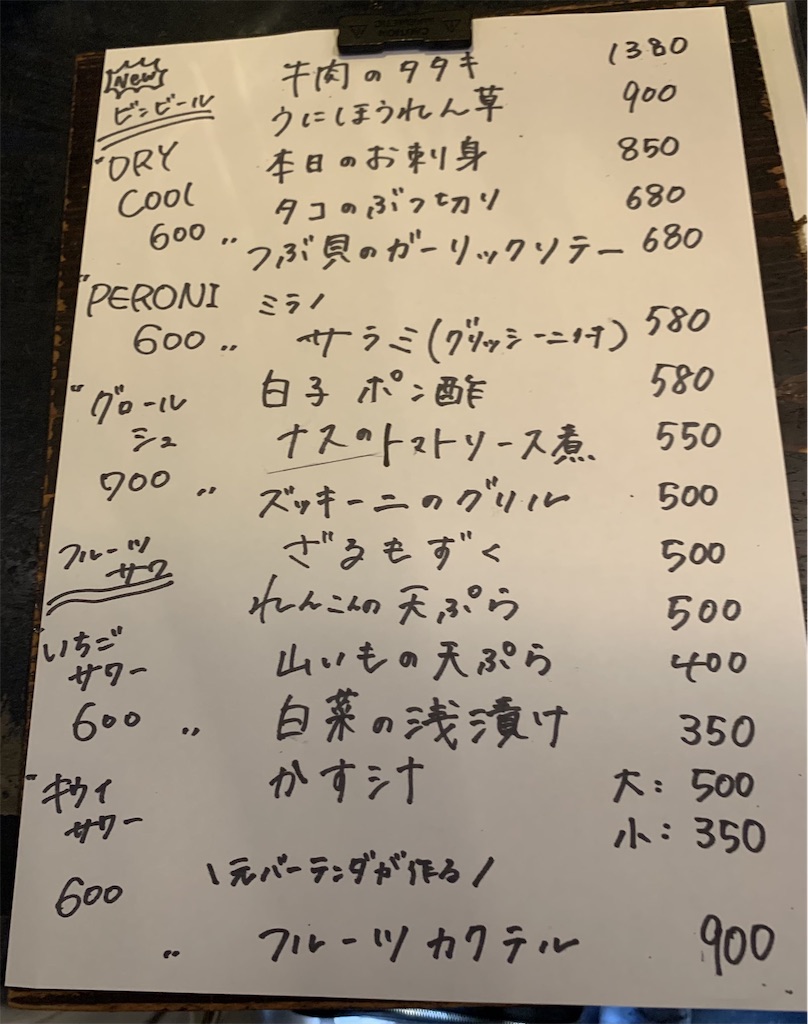 New
ビンビール
"DRY
COOL
600 〃
"PERONI
600 〃
"グロール
シュ
700 〃
フルーツ
サワー
"いちご
サワー
600 〃
"キウイ
サワー
600
〃
牛肉のタタキ 1380
うにほうれん草 900
本日のお刺身 850
タコのぶつ切り 680
つぶ貝のガーリックソテー 680
ミラノ
サラミ(グリッシーニ付) 580
白子ポン酢 580
ナスのトマトソース煮 550
ズッキーニのグリル 500
ざるもずく 500
れんこんの天ぷら 500
山いもの天ぷら 400
白菜の浅漬け 350
かす汁 大:500
小:350
\元バーテンダが作る/
フルーツカクテル 900